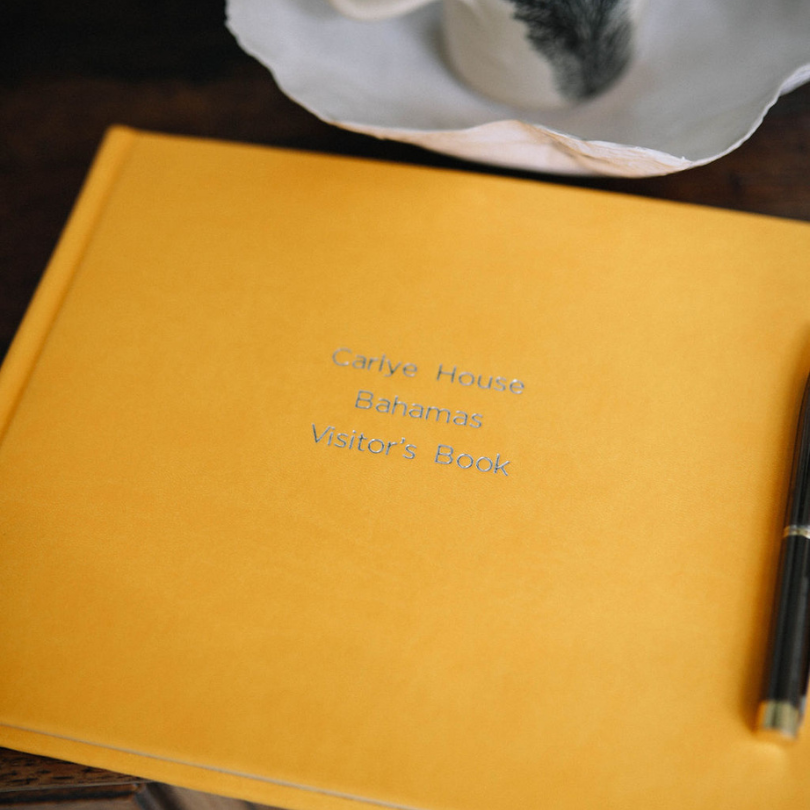 Carlye House
Bahamas
Visitor's Book